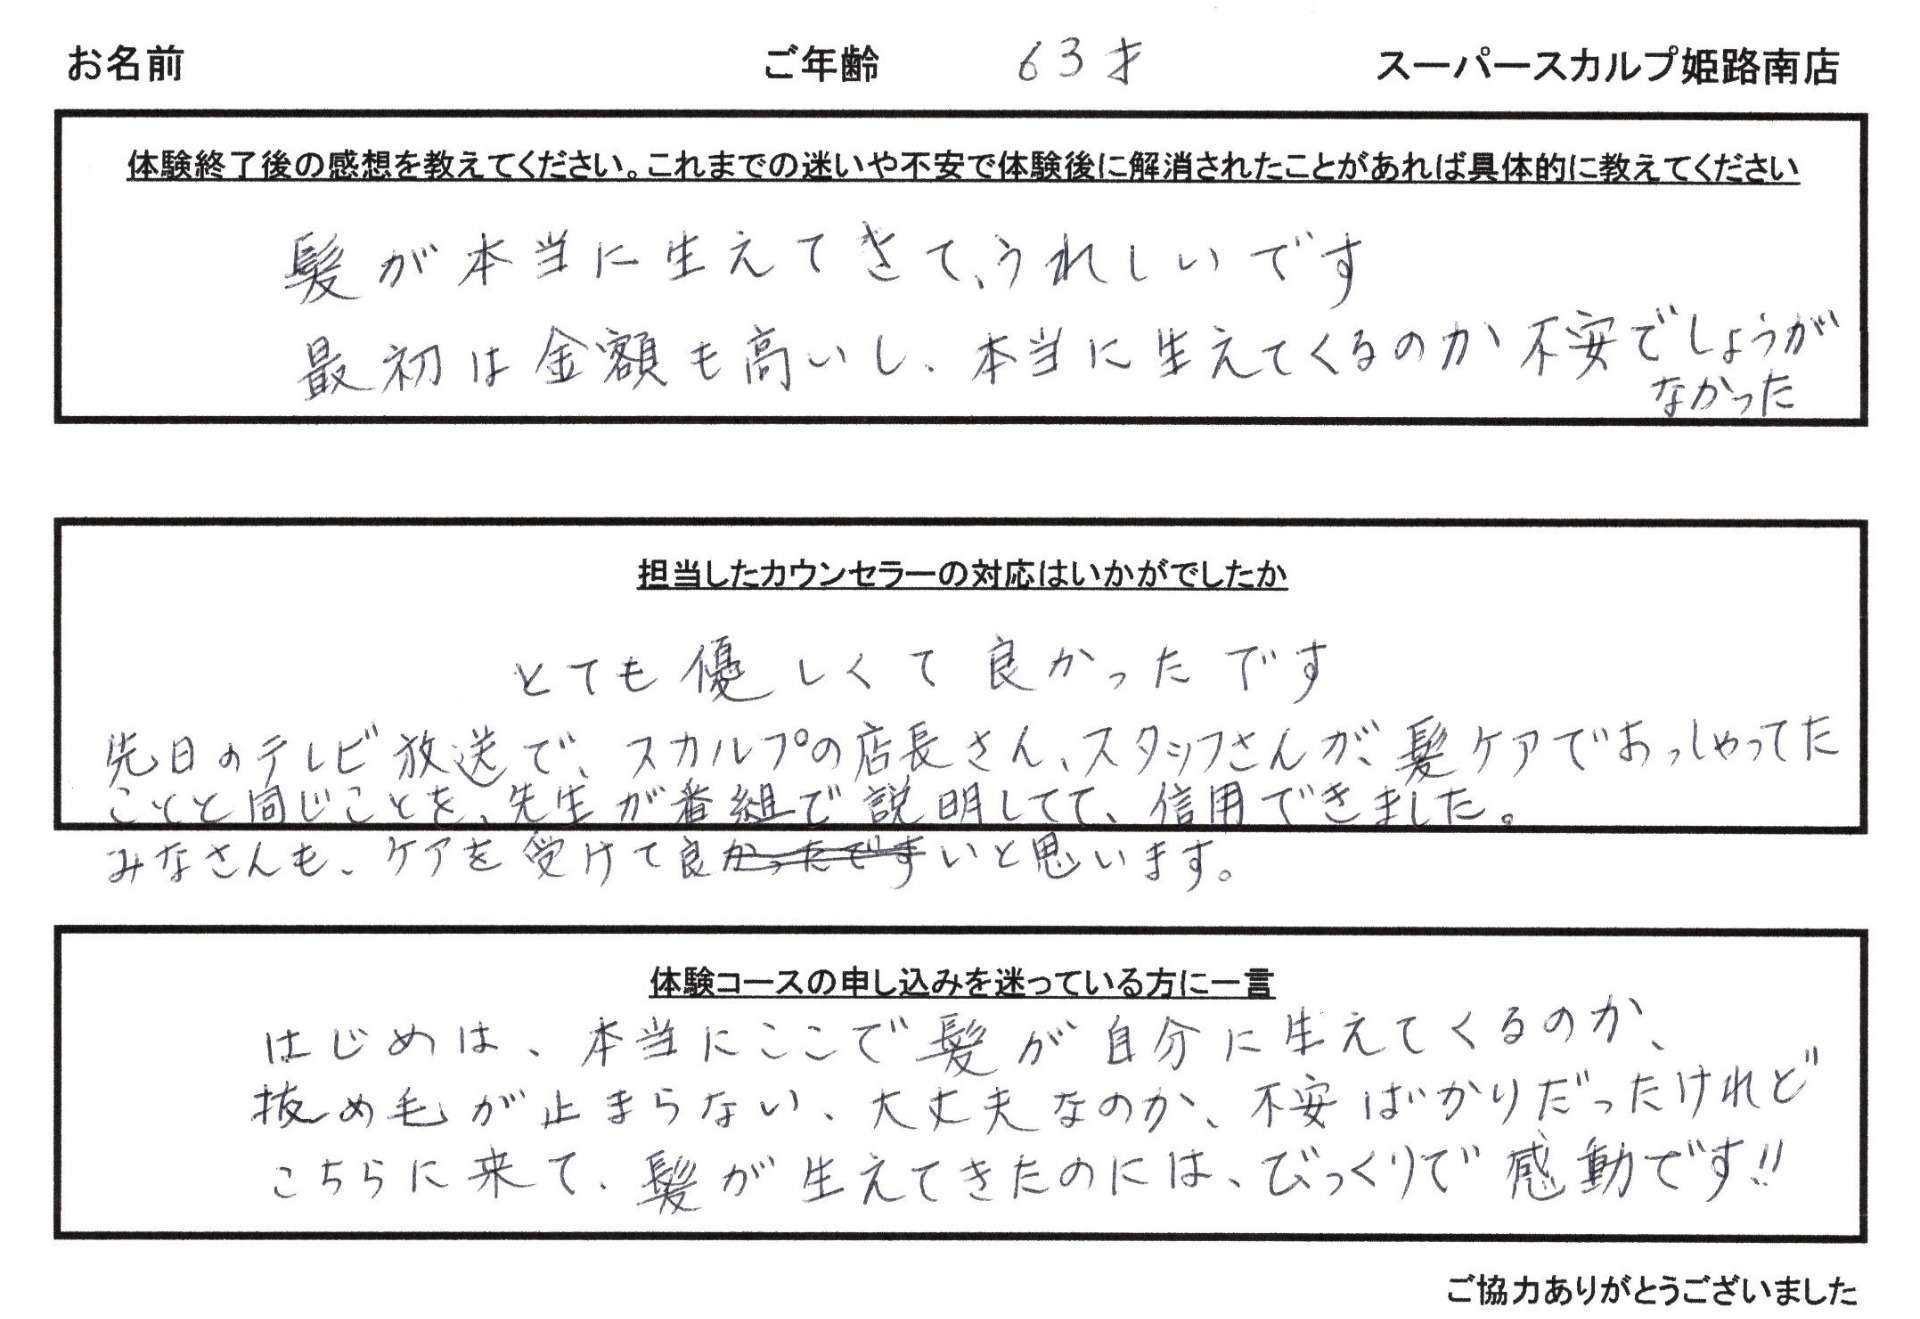 お名前 ご年齢 63才 スーパースカルプ姫路南店
体験終了後の感想を教えてください。これまでの迷いや不安で体験後に解消されたことがあれば具体的に教えてください
髪が本当に生えてきて、うれしいです
最初は金額も高いし、本当に生えてくるのか不安でしょうが
なかった
担当したカウンセラーの対応はいかがでしたか
とても優しくて良かったです
先日のテレビ放送で、スカルプの店長さん、スタッフさんが、髪ケアでおっしゃってた
ことと同じことを、先生が番組で説明してて、信用できました。
みなさんも、ケアを受けて良かったですいと思います。
体験コースの申し込みを迷っている方に一言
はじめは、本当にここで髪が自分に生えてくるのか、
抜め毛が止まらない、大丈夫なのか、不安ばかりだったけれど
こちらに来て、髪が生えてきたのには、びっくりで感動です!!
ご協力ありがとうございました